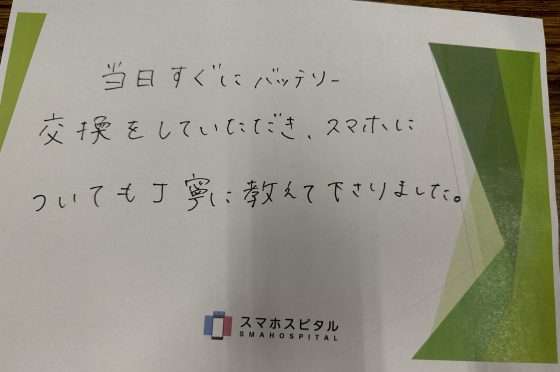 当日すぐにバッテリー
交換をしていただき、スマホに
ついても丁寧に教えて下さりました。
スマホスピタル
SMAHOSPITAL